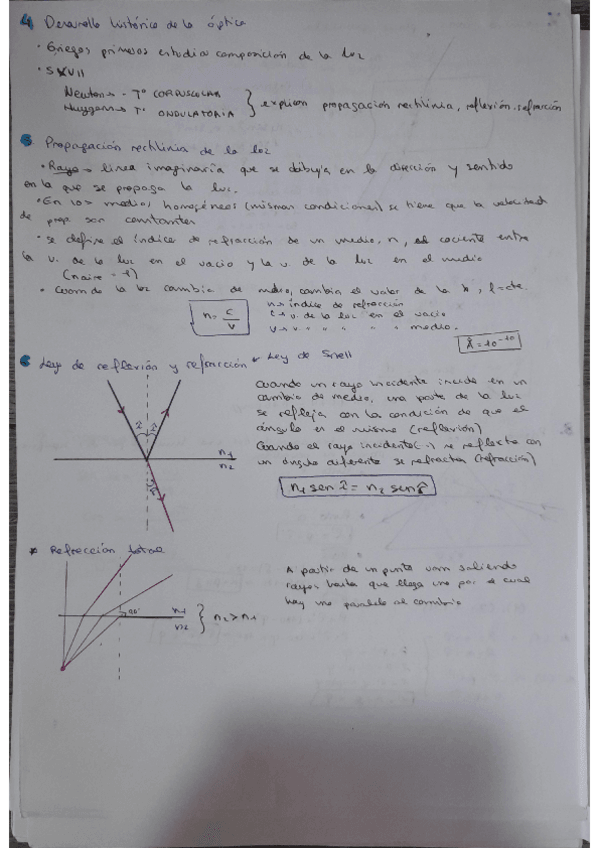 4 Desarrollo histórico de la óptica
· Griegos primeros estudiar composición de la luz
· S XVII
Newton → Tª CORPUSCULAR
Huygens → Tª ONDULATORIA } explican propagación rectilínia, reflexión, refracción
5 Propagación rectilínia de la luz
· Rayo → línea imaginaria que se dibuja en la dirección y sentido
en la que se propaga la luz.
· En los medios homogéneos (mismas condiciones) se tiene que la velocidad
de prop son constantes
· Se define el índice de refracción de un medio, n, el cociente entre
la v. de la luz en el vacío y la v. de la luz en el medio
(n aire = 1)
· Cuando la luz cambia de medio, cambia el valor de la λ, f = cte.
n = c/v
n → índice de refracción
c → v. de la luz en el vacío
v → v " " " " " medio.
Å = 10⁻¹⁰
6 Ley de reflexión y refracción Ley de Snell
Cuando un rayo incidente incide en un
cambio de medio, una parte de la luz
se refleja con la condición de que el
ángulo es el mismo (reflexión)
Cuando el rayo incidente (...) se con
un ángulo diferente se refracta (refracción)
n1 sen î = n2 sen r̂
î î
n1
n2
r̂
* Refracción total
A partir de un punto van saliendo
rayos hasta que llega uno por el cual
hay uno paralelo al cambio
90°
n1
n2 } n2 > n1